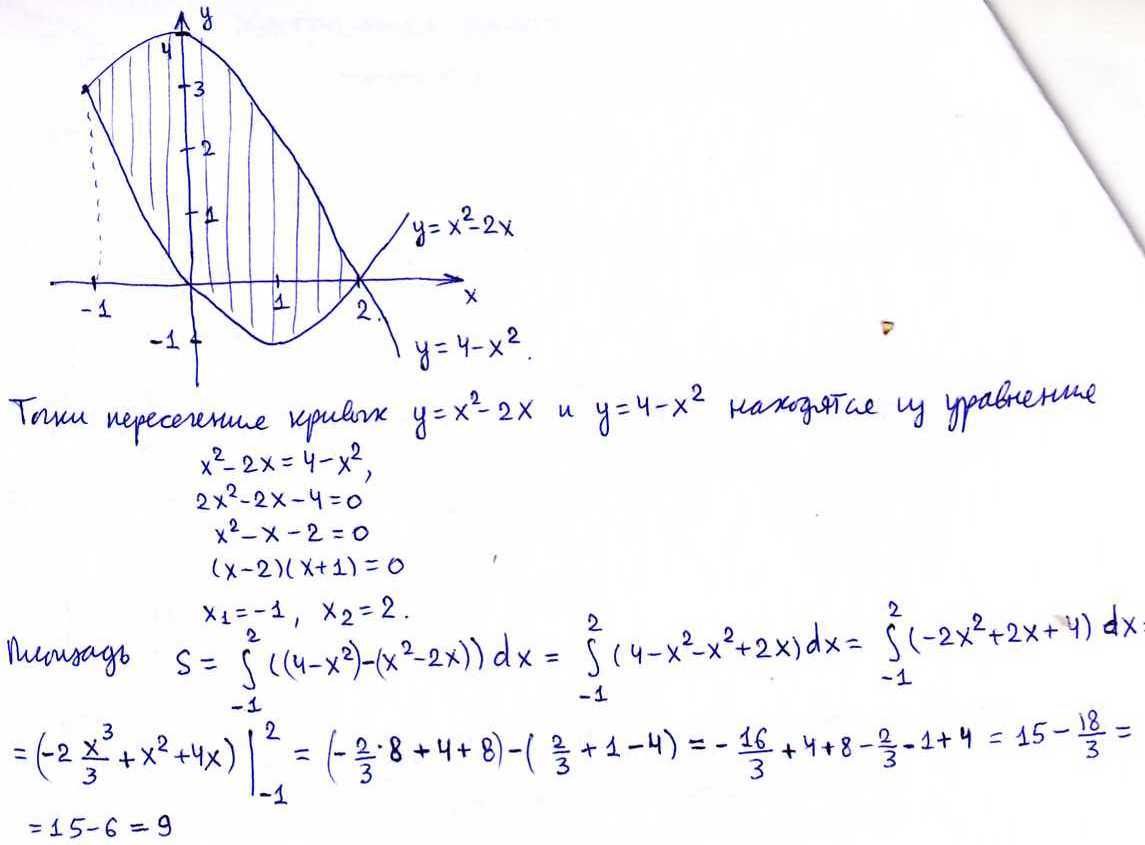 y
4
3
2
1
y = x²-2x
-1
1
2.
x
-1
y = 4-x².
Точки пересечение кривых y = x²-2x и y = 4-x² находятся из уравнение
x²-2x = 4-x²,
2x²-2x-4=0
x²-x-2=0
(x-2)(x+1)=0
x₁=-1, x₂=2.
Площадь S = ∫₋₁² ((4-x²)-(x²-2x))dx = ∫₋₁² (4-x²-x²+2x)dx = ∫₋₁² (-2x²+2x+4)dx =
= (-2 x³/3 + x² + 4x) |₋₁² = (-2/3·8+4+8)-(2/3+1-4) = -16/3+4+8-2/3-1+4 = 15-18/3 =
= 15-6 = 9